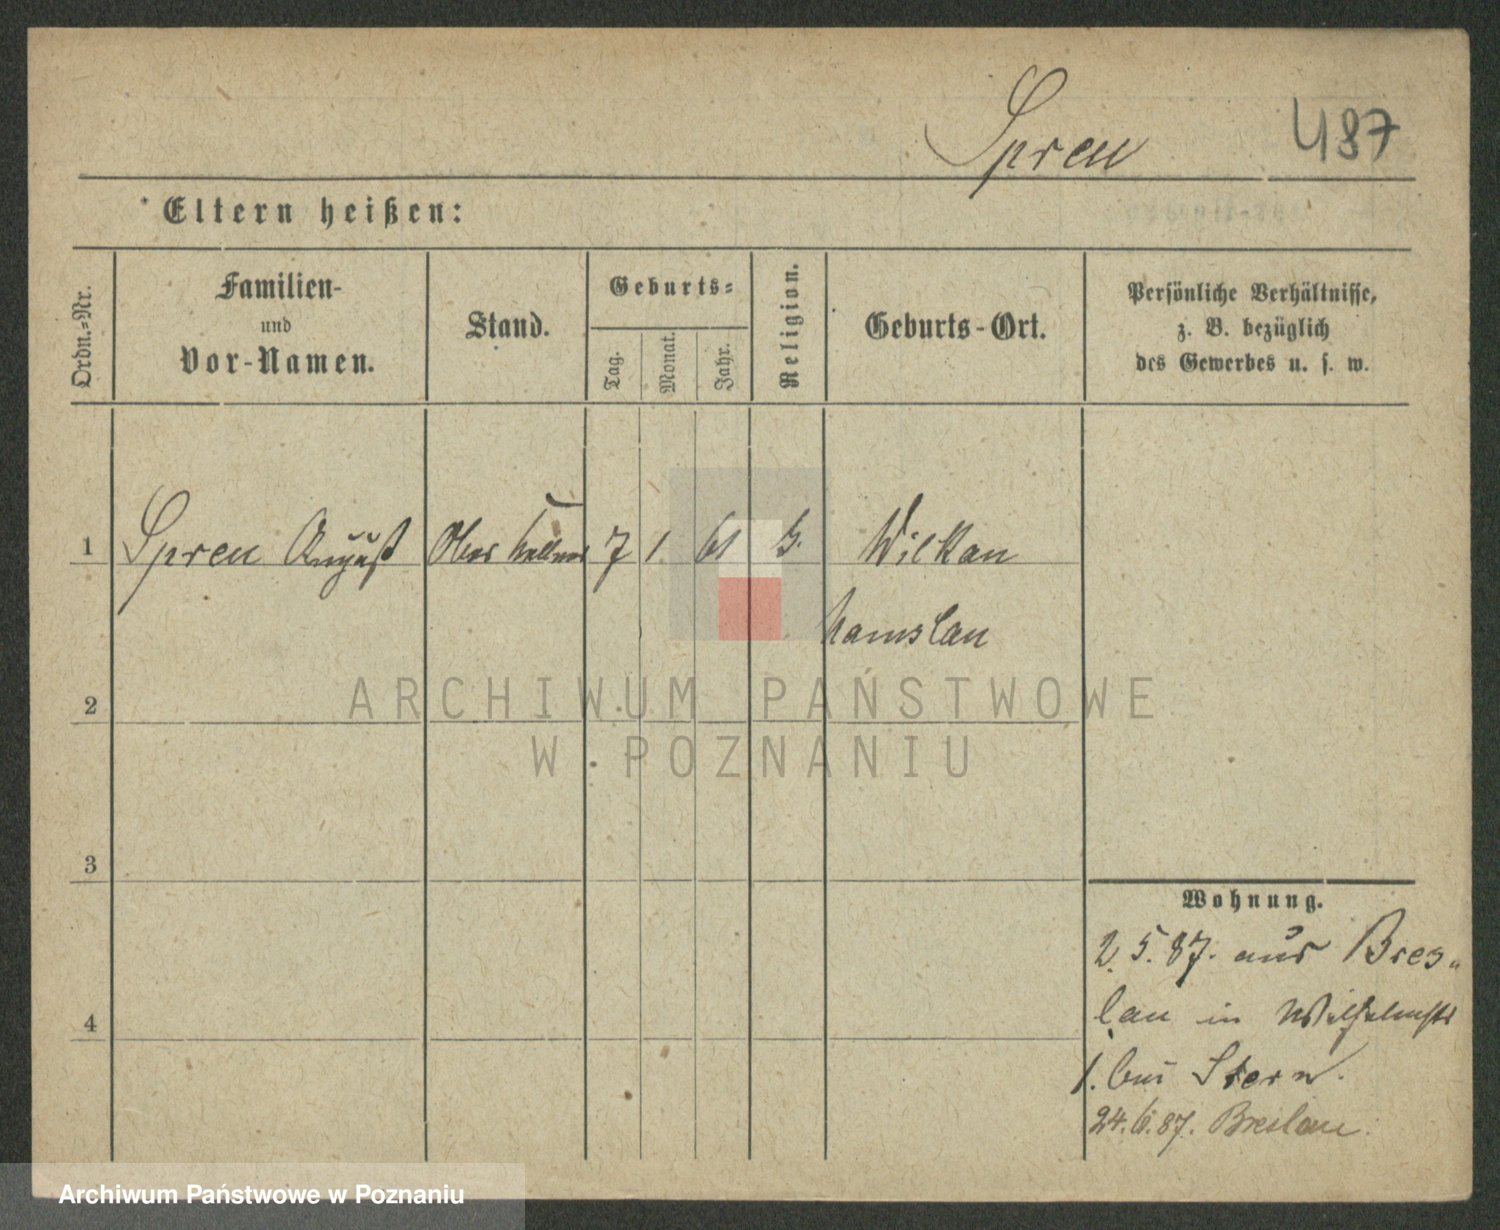 Spreu 487
Eltern heißen:
Ordn.-Nr.
Familien-
und
Vor-Namen.
Stand.
Geburts-
Tag.
Monat.
Jahr.
Religion.
Geburts-Ort.
Persönliche Verhältnisse,
z. B. bezüglich
des Gewerbes u. s. w.
1 Spreu August Ober Kellner 7 1. 61 Wilkau
Namslau
2
3
4
Wohnung.
2. 5. 87. aus Bres-
lau in Wilhelmstr
1. bei Stern.
24. 6. 87. Breslau.
ARCHIWUM PAŃSTWOWE
W POZNANIU
Archiwum Państwowe w Poznaniu